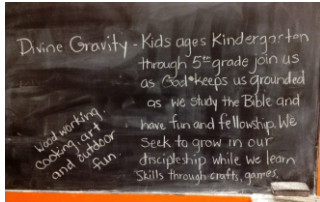 Divine Gravity - Kids ages Kindergarten
through 5th grade join us
as God keeps us grounded
as we study the Bible and
have fun and fellowship. We
seek to grow in our
discipleship while we learn
skills through crafts, games.
wood working,
cooking, art
and outdoor
fun.